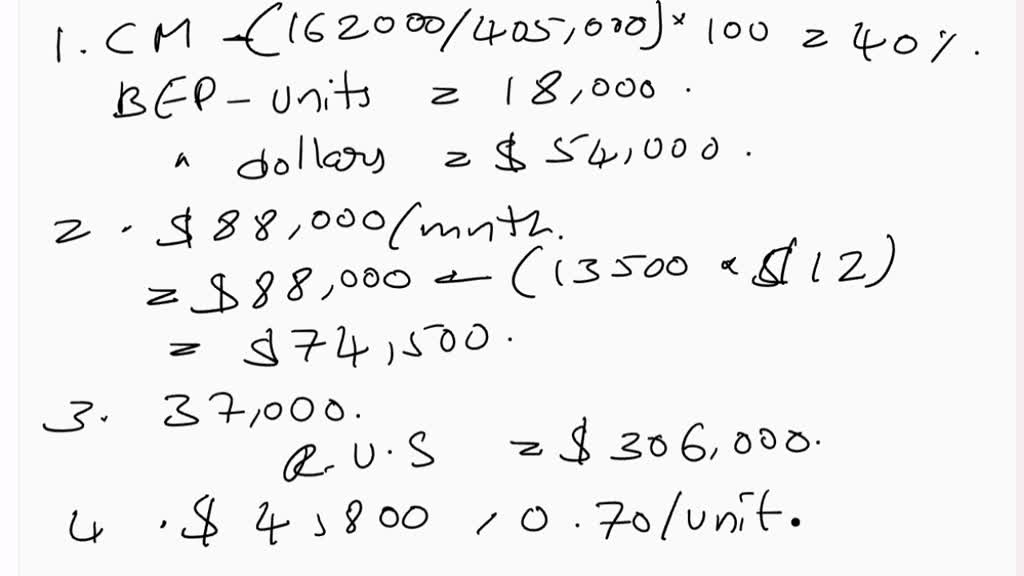 1. CM - (162000/405,000) * 100 = 40%.
BEP - units = 18,000.
" dollars = $54,000.
2. $88,000/mnth.
= $88,000 - (13500 * $12)
= $74,500.
3. 37,000.
R.U.S = $306,000.
4. $4,800, 0.70/unit.